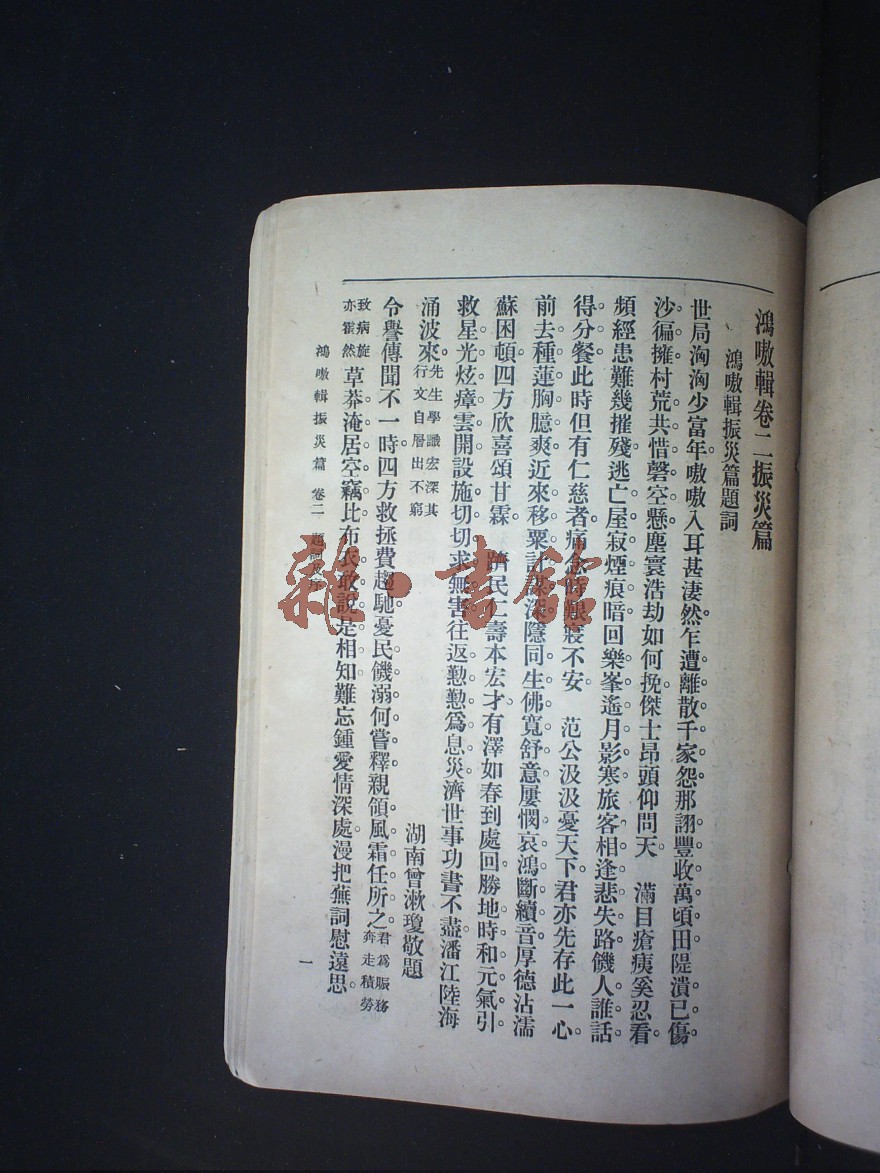 鴻嗷輯卷二振災篇
鴻嗷輯振災篇題詞
世局洶洶少富年嗷嗷入耳甚淒然乍遭離散千家怨那詡豐收萬頃田隄潰已傷
沙徧擁村荒共惜磬空懸塵寰浩劫如何挽傑士昂頭仰問天　滿目瘡痍奚忍看
頻經患難幾摧殘逃亡屋寂煙痕暗回樂峯遙月影寒旅客相逢悲失路饑人誰話
得分餐此時但有仁慈者痛念時艱寢不安　范公汲汲憂天下君亦先存此一心
前去種蓮胸臆爽近來移粟計謀深隱同生佛寬舒意屢憫哀鴻斷續音厚德沾濡
蘇困頓四方欣喜頌甘霖　躋民仁壽本宏才有澤如春到處回勝地時和元氣引
救星光炫瘴雲開設施切切求無害往返懃懃爲息災濟世事功書不盡潘江陸海
涌波來先生學識宏深其行文自層出不窮
湖南曾漱瓊敬題
令譽傳聞不一時四方救拯費趨馳憂民饑溺何嘗釋親領風霜任所之君爲賑務奔走積勞
致病旋亦霍然草莽淹居空竊比布衣敢說是相知難忘鍾愛情深處漫把蕪詞慰遠思
鴻嗷輯振災篇　卷二　題詞及序
一
雜·書館